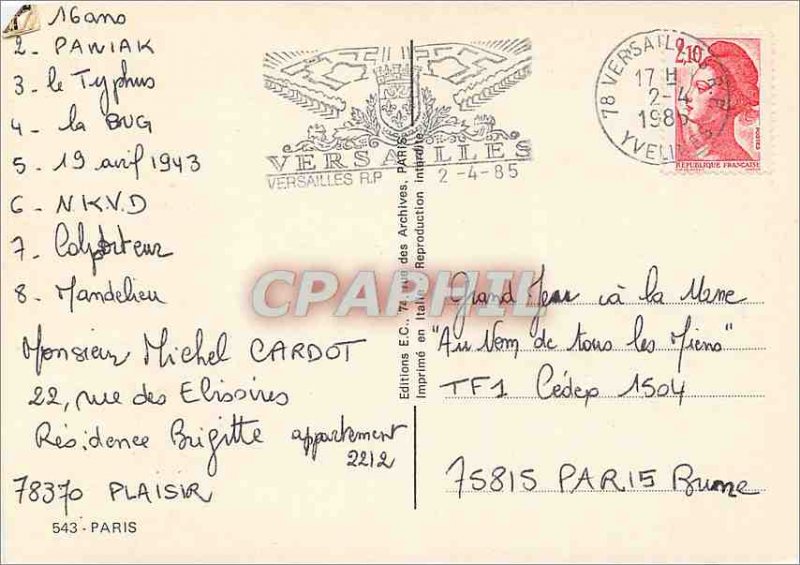 16 ans
2 - PAWIAK
3 - le Typhus
4 - la BUG
5 - 19 avril 1943
6 - N.K.V.D
7 - Colporteur
8 - Mandelieu
Monsieur Michel CARDOT
22, rue des Elissoires
Résidence Brigitte appartement
2212
78370 PLAISIR
543 - PARIS
VERSAILLES
VERSAILLES R.P 2-4-85
Editions E.C., 74, rue des Archives, PARIS
Imprimé en Italie Reproduction interdite
CPAPHIL
78 VERSAILLES R.P
17 H
2-4
1985
YVELINES
2,10
POSTES
REPUBLIQUE FRANÇAISE
Grand Jeu à la Une
"Au Nom de tous les Miens"
TF1 Cédex 1504
75815 PARIS Brune